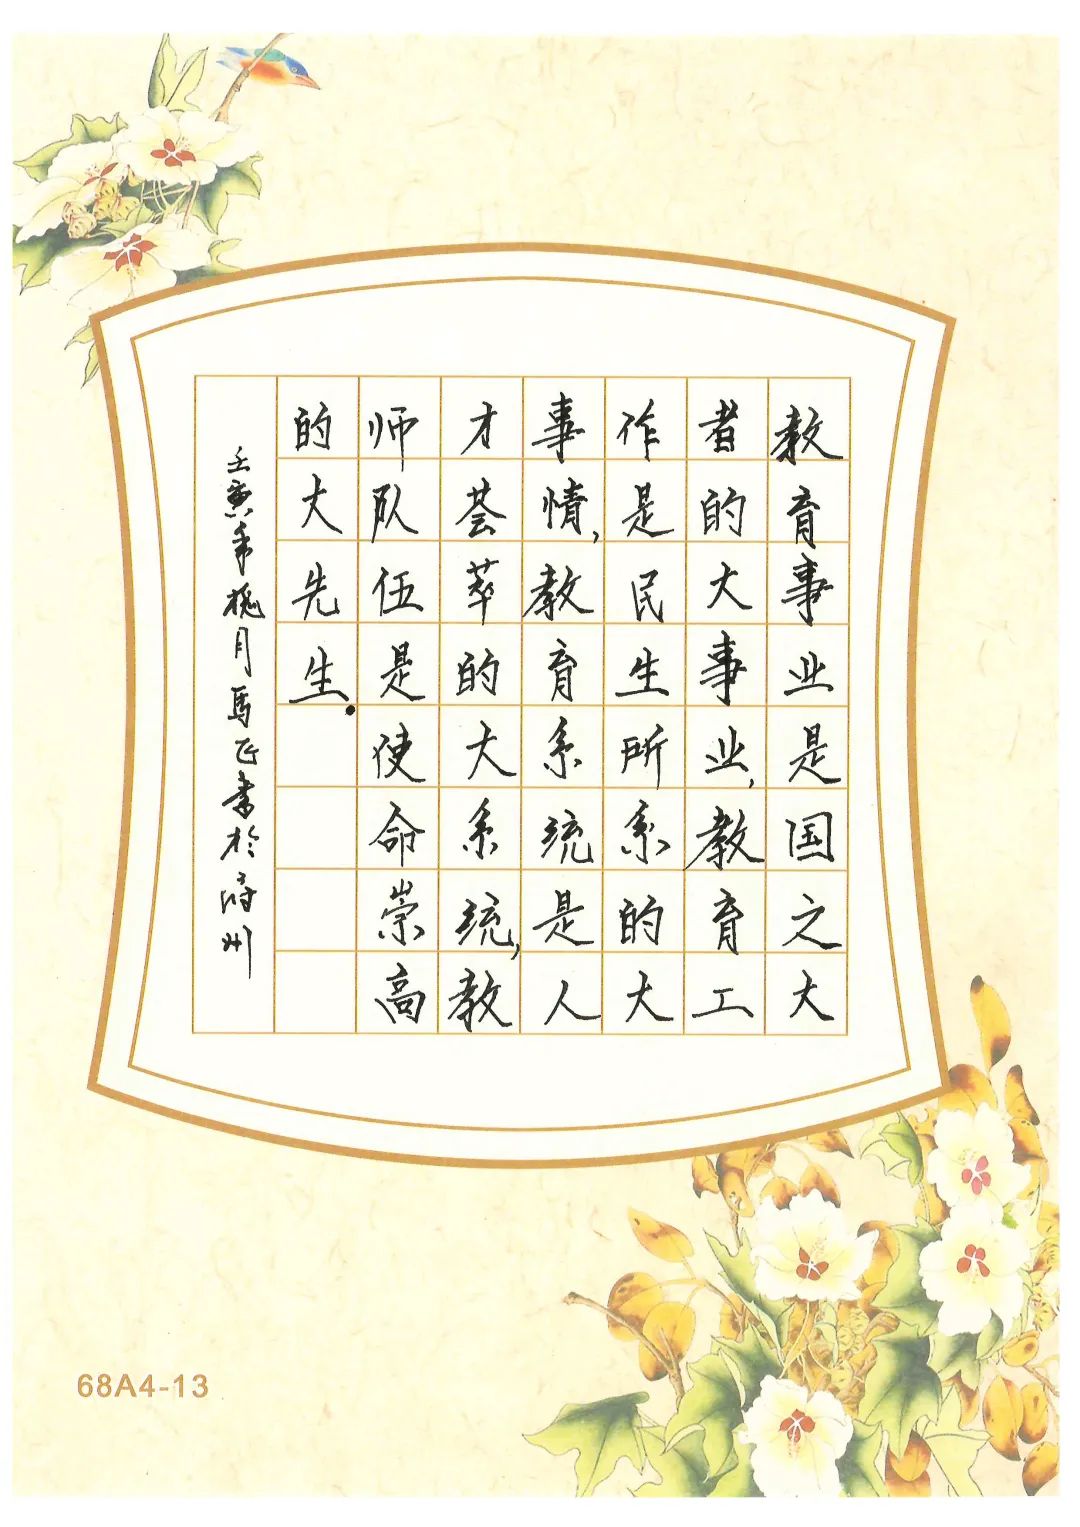 教育事业是国之大
者的大事业,教育工
作是民生所系的大
事情,教育系统是人
才荟萃的大系统,教
师队伍是使命崇高
的大先生.
壬寅年槐月馬正书於州
68A4-13